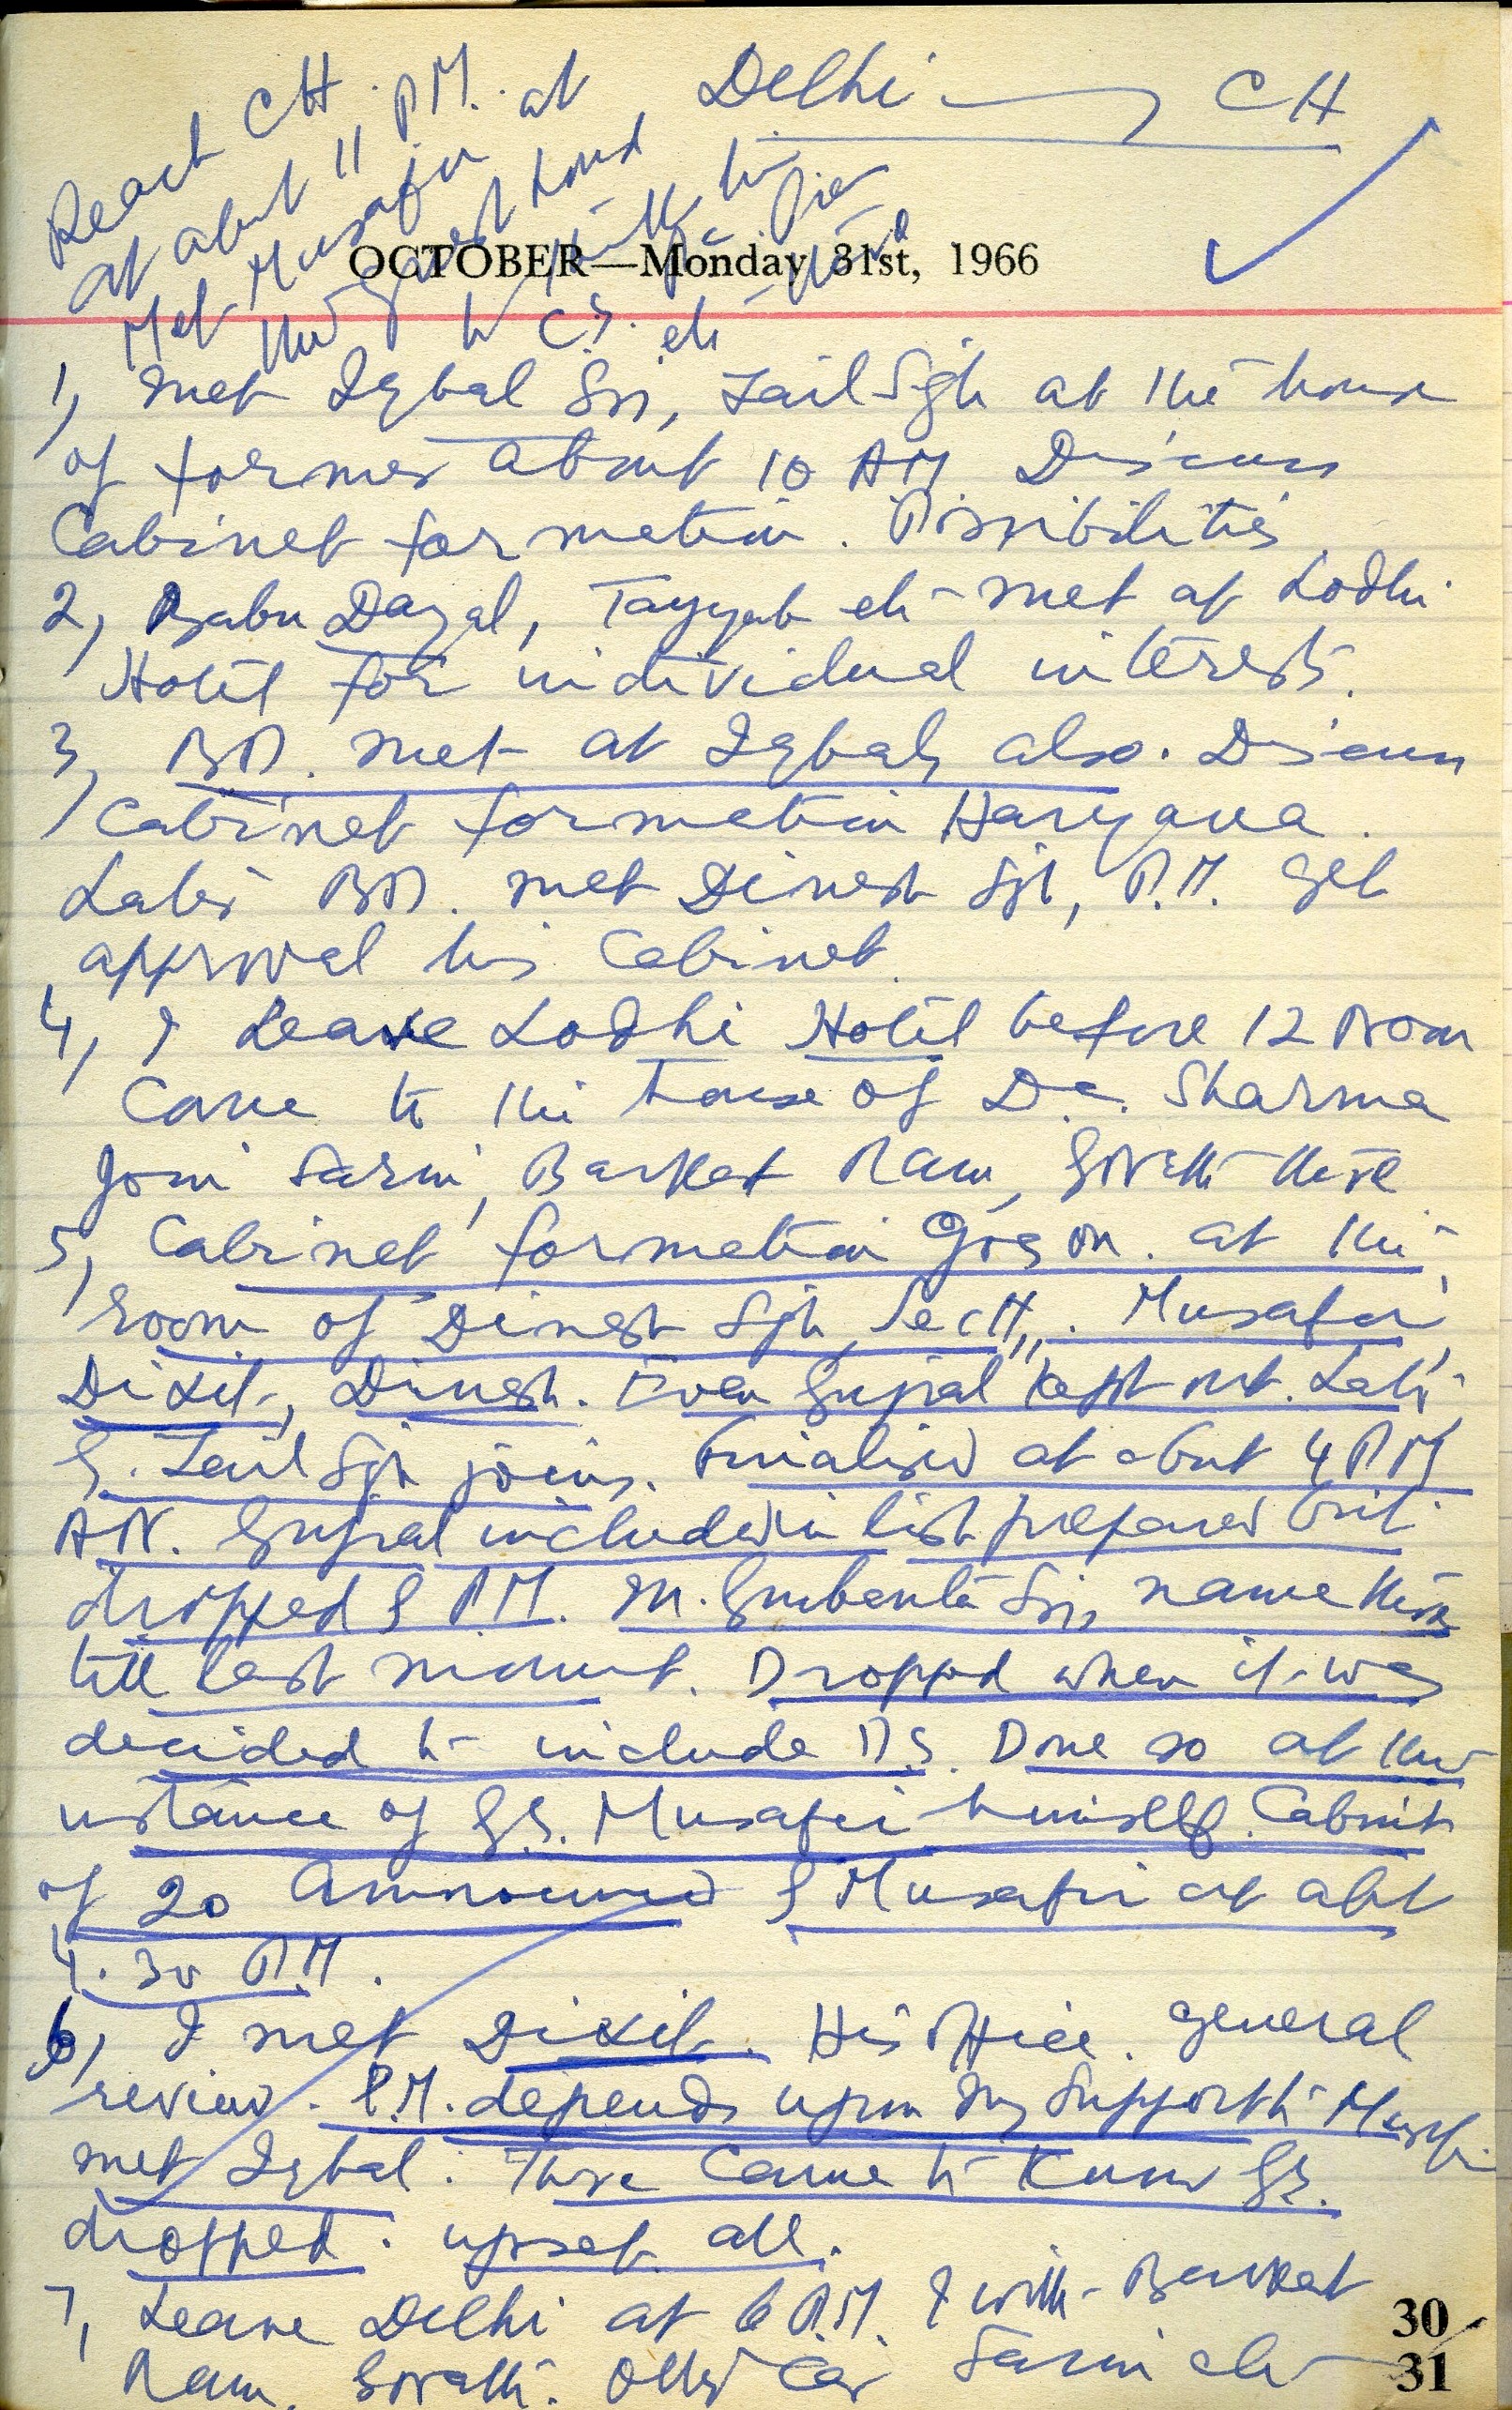 Delhi → CH
Reach CH.
at about 11 P.M.
Met Musafir at
the guest house
to with him
C.S. etc
OCTOBER—Monday 31st, 1966
1, Met Iqbal Sin, Zail Sgh at the house
of former about 10 AM Discuss
Cabinet formation. Possibilities
2, Babu Dayal, Tayyab etc met at Lodhi
Hotel for individual interests.
3, BD. met at Iqbals also. Discuss
Cabinet formation Haryana.
Later BD. met Dinesh Sgh, P.M. get
approval his Cabinet.
4, I Leave Lodhi Hotel before 12 Noon
Came to the house of Dr. Sharma
Join Sarin, Barket Ram, there
5, Cabinet formation goes on. at the
room of Dinesh Sgh, Sectt,,. Musafir,
Dixit, Dinesh. Even Gujral kept out. Later
G. Zail Sgh joins. Finalised at about 4 PM
AN. Gujral included in list prepared but
dropped by PM. M. Gurbanta Sin, name there
till last minute. Dropped when it was
decided to include P.S. Done so at the
instance of G.S. Musafir himself. Cabinet
of 20 announced by Musafir at abt
4.30 P.M.
6, I met Dixit. His office. General
review. P.M. depends upon my support to Musafir
met Iqbal. There came to know GS.
dropped. upset all.
7, Leave Delhi at 6 P.M. I with Barket
Ram, Other Car Sarin etc
30
31